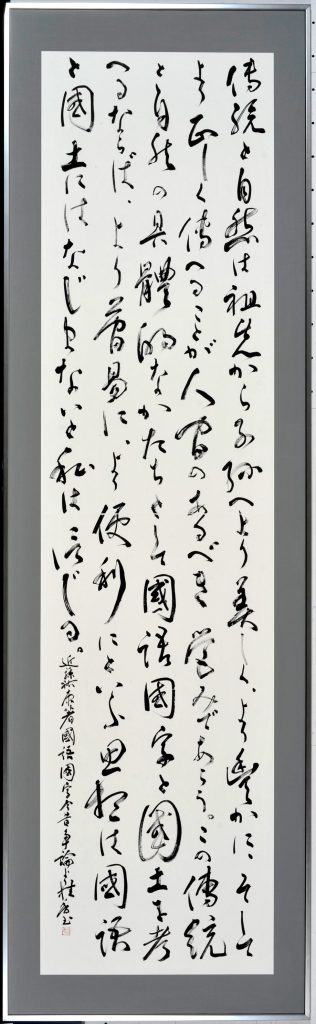 傳統と自然は祖先から子孫へより美しく、より豊かに、そして
より正しく傳へることが人間のあるべき營みであらう。この傳統
と自然の具體的なかたちとして國語國字と國土を考
へるならば、より容易に、より便利にといふ思想は國語
と國土にはなじまないと私は信じる。
近藤 康著 國語國字今昔爭論より 桂 書